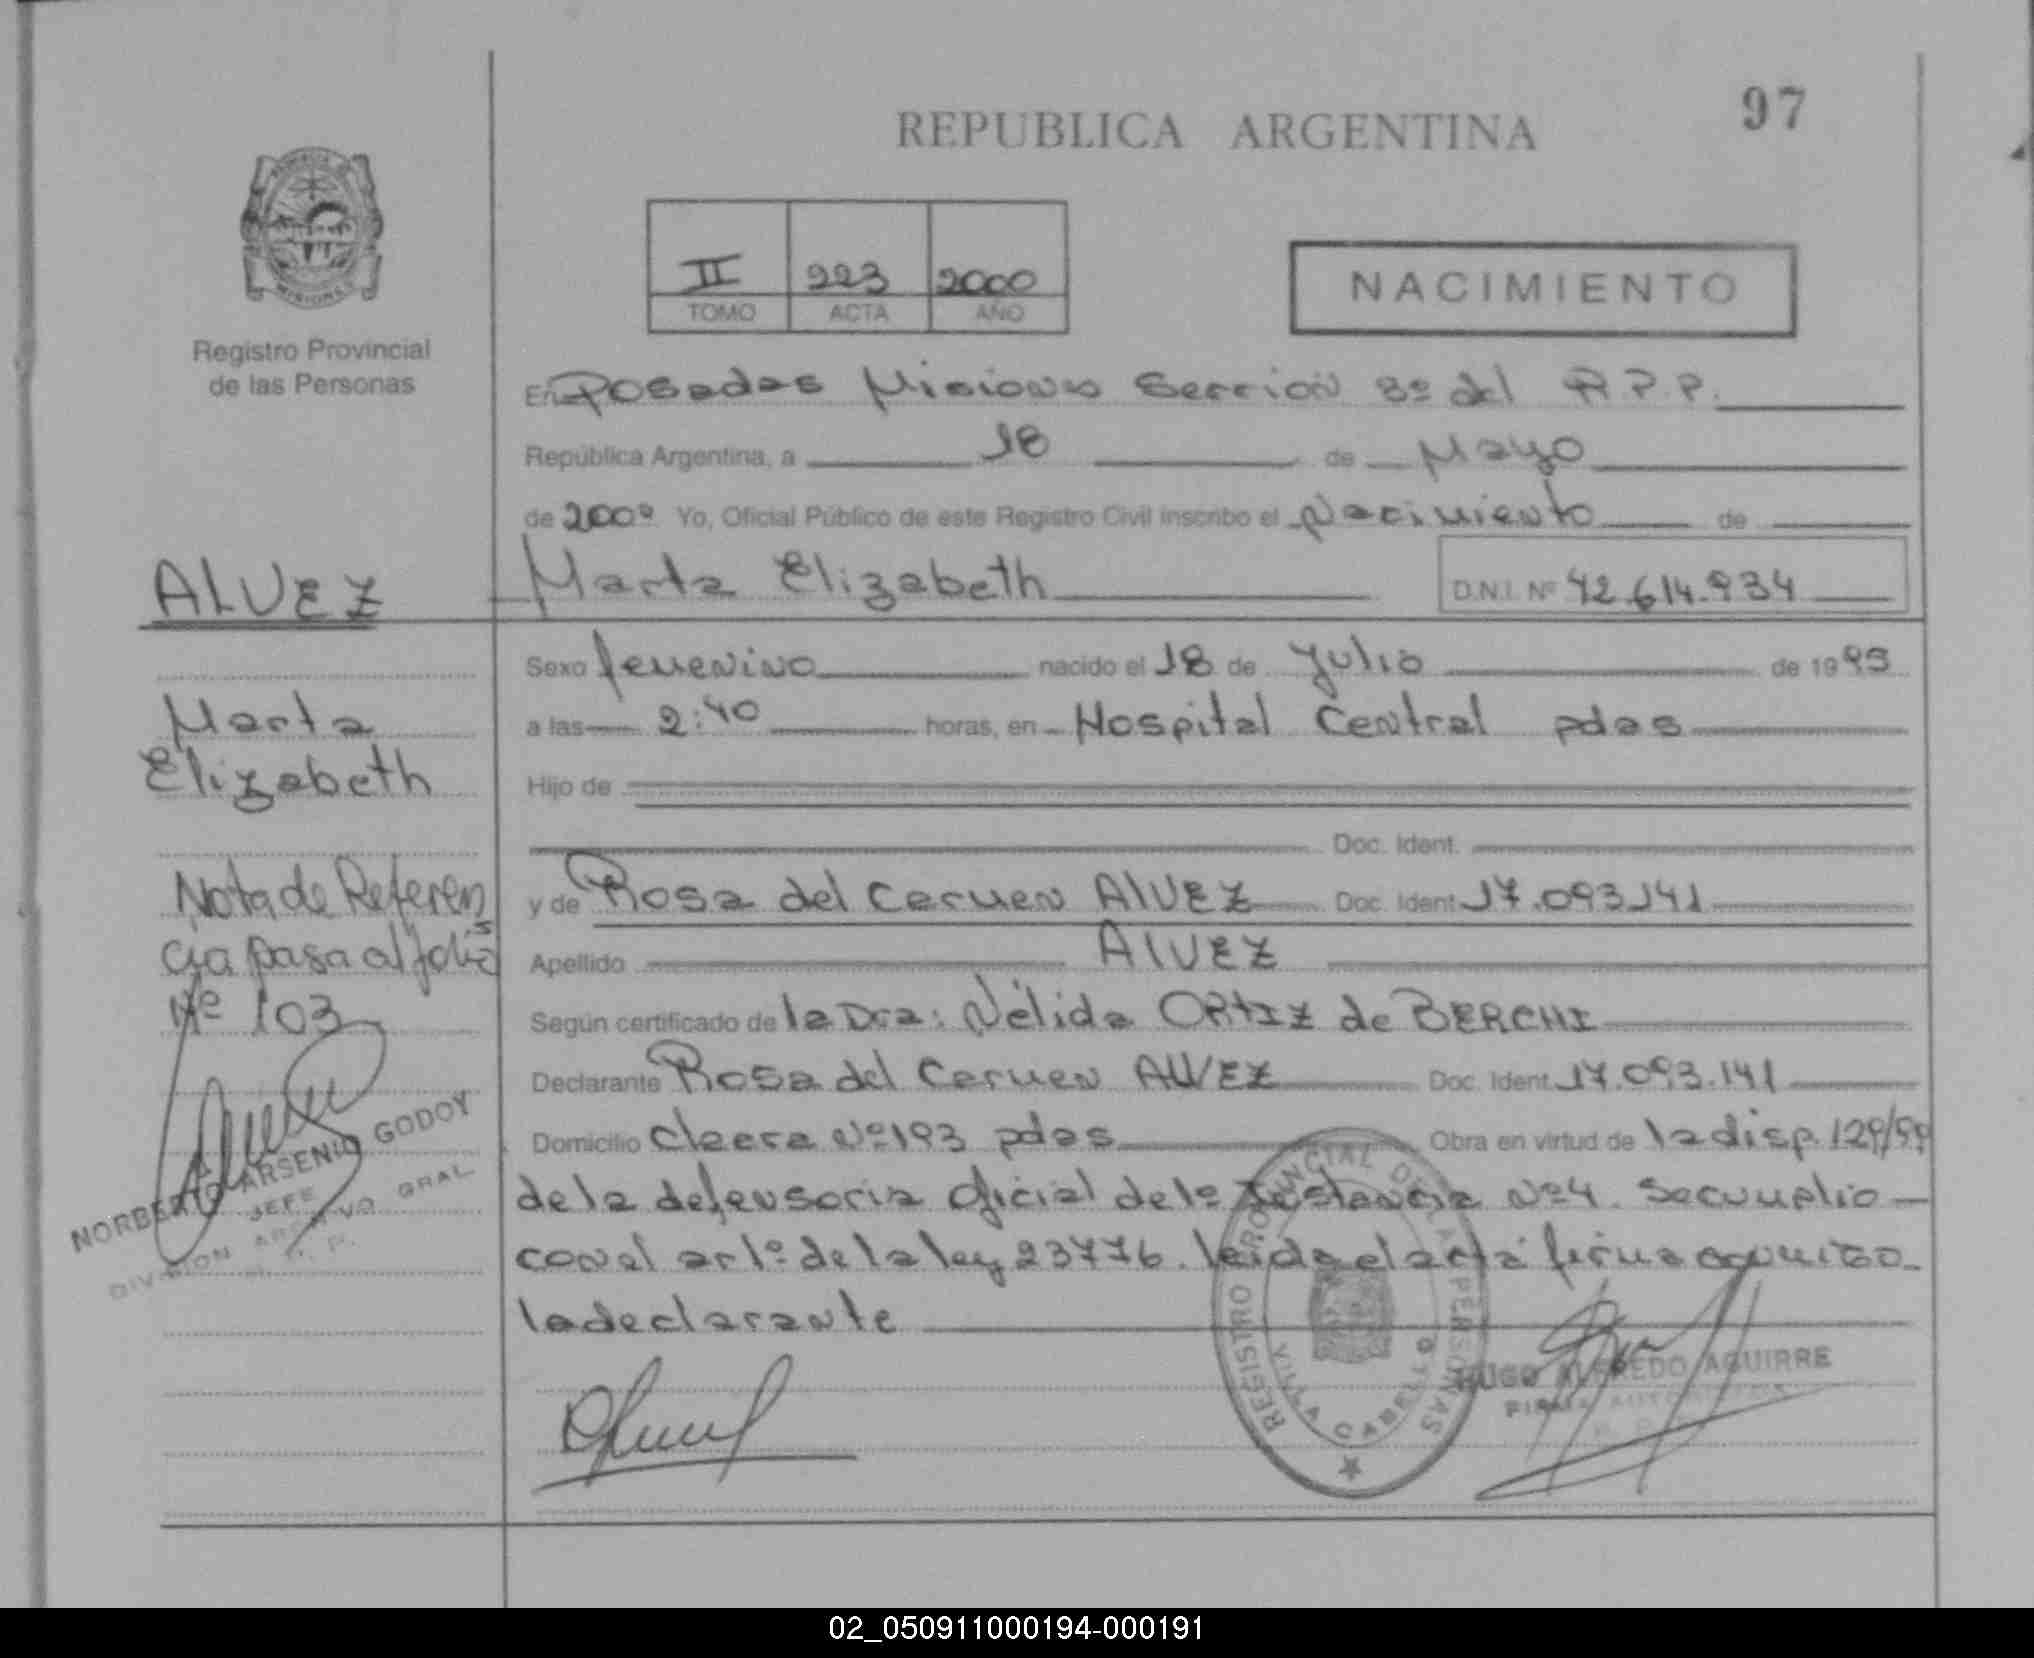 REPUBLICA ARGENTINA
97
MISIONES
Registro Provincial
de las Personas
II 223 2000
TOMO ACTA AÑO
NACIMIENTO
En Posadas Misiones Sección 3º del R.P.P.
República Argentina, a 18 de Mayo
de 2000 Yo, Oficial Público de este Registro Civil inscribo el Nacimiento de
Marta Elizabeth D.N.I. Nº 42.614.934
Sexo femenino nacido el 18 de Julio de 1999
a las 2:40 horas, en Hospital Central pdas
Hijo de
Doc. Ident.
y de Rosa del Carmen ALVEZ Doc. Ident. 17.093.141
Apellido ALVEZ
Según certificado de la Dra: Nélida ORTIZ de BERCHI
Declarante Rosa del Carmen ALVEZ Doc. Ident. 17.093.141
Domicilio Claera Nº 193 pdas Obra en virtud de la disp. 129/99
de la defensoria oficial de 1º Instancia Nº 4. Se cumplio
con el ar 1º de la ley 23776. leida el acta firma conmigo
la declarante
ALVEZ
Marta
Elizabeth
Nota de Referen
cia pasa al folio
Nº 103
NORBERTO ARSENIO GODOY
JEFE
DIVISION ARCHIVO GRAL
R. P. P.
REGISTRO PROVINCIAL DE LAS PERSONAS
VILLA CABELLO
HUGO ALFREDO AGUIRRE
FIRMA AUTORIZADA
02_050911000194-000191